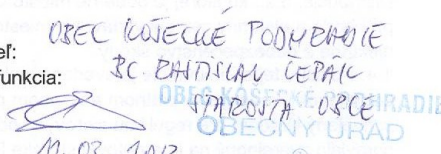 OBEC KOŠECKÉ PODHRADIE
eľ:
unkcia:
BC RASTISLAV ČEPÁK
STAROSTA OBCE
OBEC KOŠECKÉ PODHRADIE
OBECNÝ ÚRAD